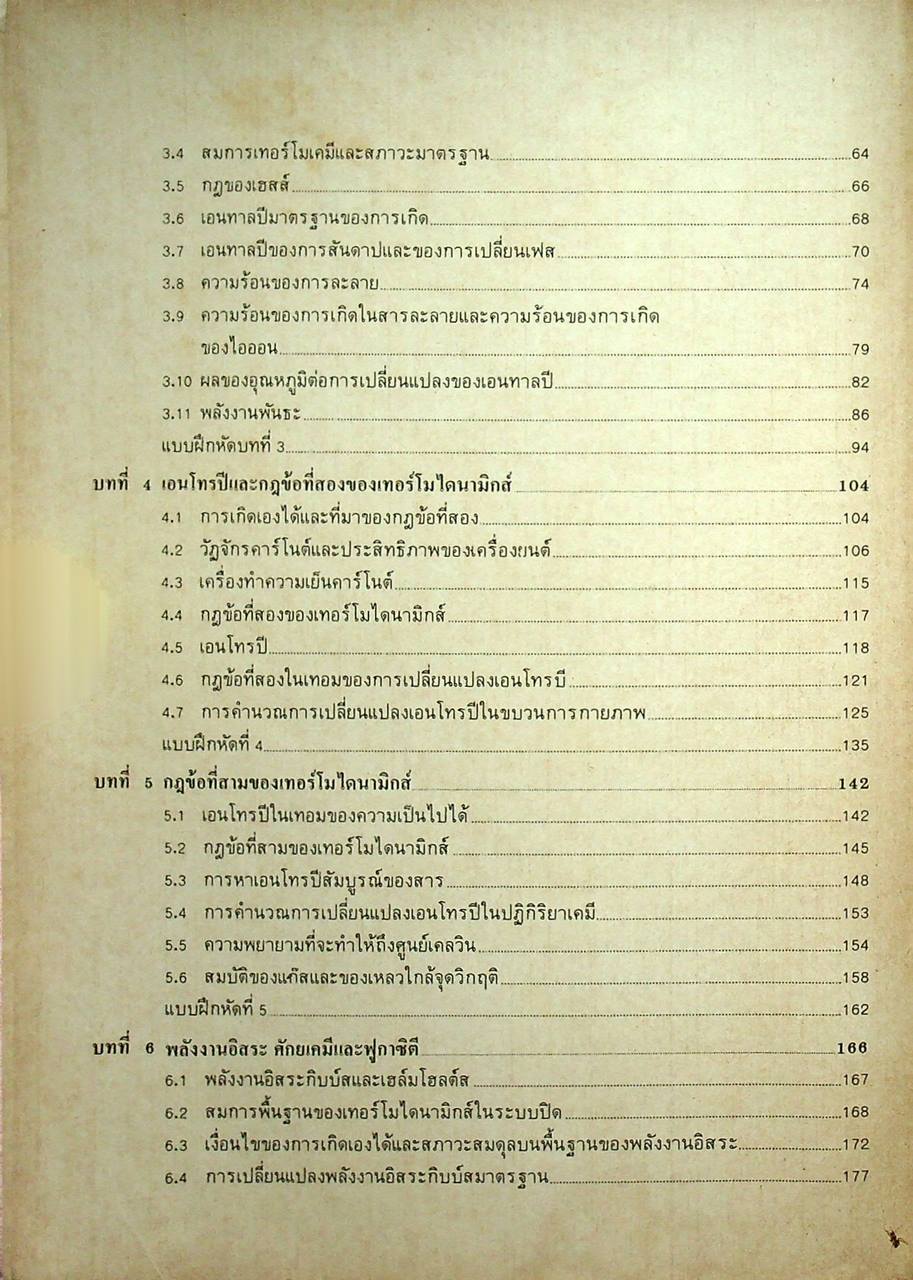 3.4 สมการเทอร์โมเคมีและสภาวะมาตรฐาน 64
3.5 กฎของเฮสส์ 66
3.6 เอนทาลปีมาตรฐานของการเกิด 68
3.7 เอนทาลปีของการสันดาปและของการเปลี่ยนเฟส 70
3.8 ความร้อนของการละลาย 74
3.9 ความร้อนของการเกิดในสารละลายและความร้อนของการเกิด
ของไอออน 79
3.10 ผลของอุณหภูมิต่อการเปลี่ยนแปลงของเอนทาลปี 82
3.11 พลังงานพันธะ 86
แบบฝึกหัดบทที่ 3 94
บทที่ 4 เอนโทรปีและกฎข้อที่สองของเทอร์โมไดนามิกส์ 104
4.1 การเกิดเองได้และที่มาของกฎข้อที่สอง 104
4.2 วัฏจักรคาร์โนต์และประสิทธิภาพของเครื่องยนต์ 106
4.3 เครื่องทำความเย็นคาร์โนต์ 115
4.4 กฎข้อที่สองของเทอร์โมไดนามิกส์ 117
4.5 เอนโทรปี 118
4.6 กฎข้อที่สองในเทอมของการเปลี่ยนแปลงเอนโทรบี 121
4.7 การคำนวณการเปลี่ยนแปลงเอนโทรปีในขบวนการกายภาพ 125
แบบฝึกหัดที่ 4 135
บทที่ 5 กฎข้อที่สามของเทอร์โมไดนามิกส์ 142
5.1 เอนโทรปีในเทอมของความเป็นไปได้ 142
5.2 กฎข้อที่สามของเทอร์โมไดนามิกส์ 145
5.3 การหาเอนโทรปีสัมบูรณ์ของสาร 148
5.4 การคำนวณการเปลี่ยนแปลงเอนโทรปีในปฏิกิริยาเคมี 153
5.5 ความพยายามที่จะทำให้ถึงศูนย์เคลวิน 154
5.6 สมบัติของแก๊สและของเหลวใกล้จุดวิกฤติ 158
แบบฝึกหัดที่ 5 162
บทที่ 6 พลังงานอิสระ ศักยเคมีและฟูกาซิตี 166
6.1 พลังงานอิสระกิบบ์สและเฮล์มโฮลต์ส 167
6.2 สมการพื้นฐานของเทอร์โมไดนามิกส์ในระบบปิด 168
6.3 เงื่อนไขของการเกิดเองได้และสภาวะสมดุลบนพื้นฐานของพลังงานอิสระ 172
6.4 การเปลี่ยนแปลงพลังงานอิสระกิบบ์สมาตรฐาน 177